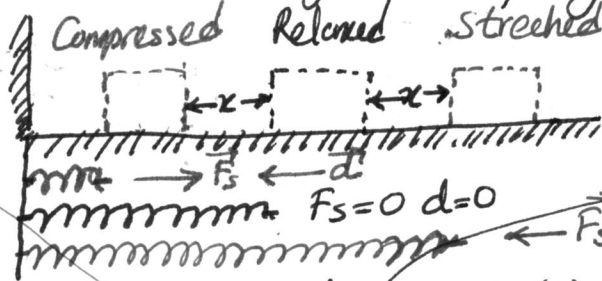 Compressed Relaxed Streched
x x
Fs d
Fs=0 d=0
Fs